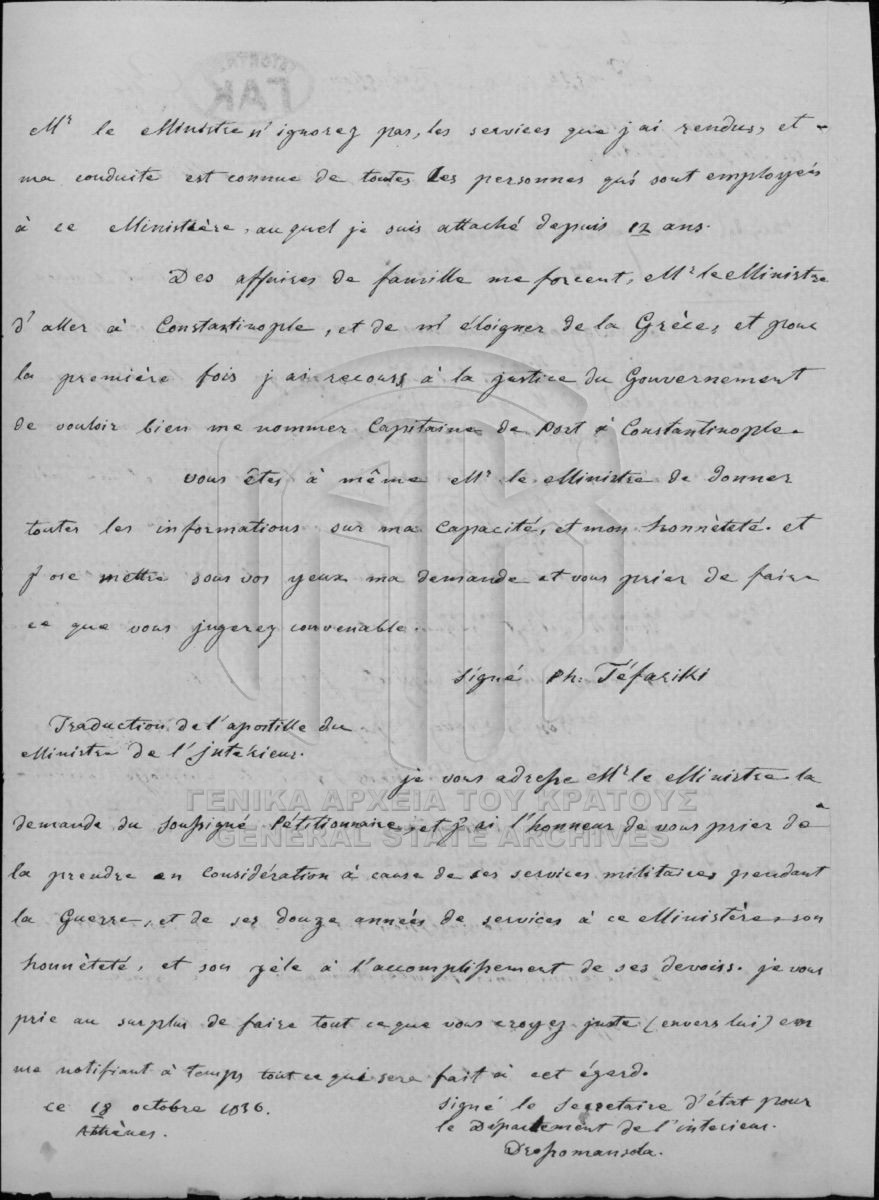 Mr le Ministre n'ignorez pas, les services que j'ai rendus, et
ma conduite est connue de toutes les personnes qui sont employées
à ce Ministère, auquel je suis attaché depuis 12 ans.
Des affaires de famille me forcent, Mr le Ministre
d'aller à Constantinople, et de m'éloigner de la Grèce, et pour
la première fois j'ai recours à la justice du Gouvernement
de vouloir bien me nommer Capitaine de Port à Constantinople.
Vous êtes à même Mr le Ministre de donner
toutes les informations sur ma capacité, et mon honnèteté. et
j'ose mettre sous vos yeux ma demande et vous prier de faire
ce que vous jugerez convenable.
signé Ph: Téfariki
Traduction de l'apostille du
Ministre de l'jnterieur.
je vous adresse Mr le Ministre la
demande du soussigné Pétitionnaire, et j'ai l'honneur de vous prier de
la prendre en considération à cause de ses services militaires pendant
la Guerre, et de ses douze années de services à ce Ministère, son
honnèteté, et son zèle à l'accomplissement de ses devoirs. je vous
prie au surplus de faire tout ce que vous croyez juste (envers lui) en
me notifiant à temps tout ce qui sera fait à cet égard.
ce 18 octobre 1836.
Athènes.
signé le secretaire d'état pour
le Département de l'interieur.
ΓΑΚ
ΓΕΝΙΚΑ ΑΡΧΕΙΑ ΤΟΥ ΚΡΑΤΟΥΣ
GENERAL STATE ARCHIVES